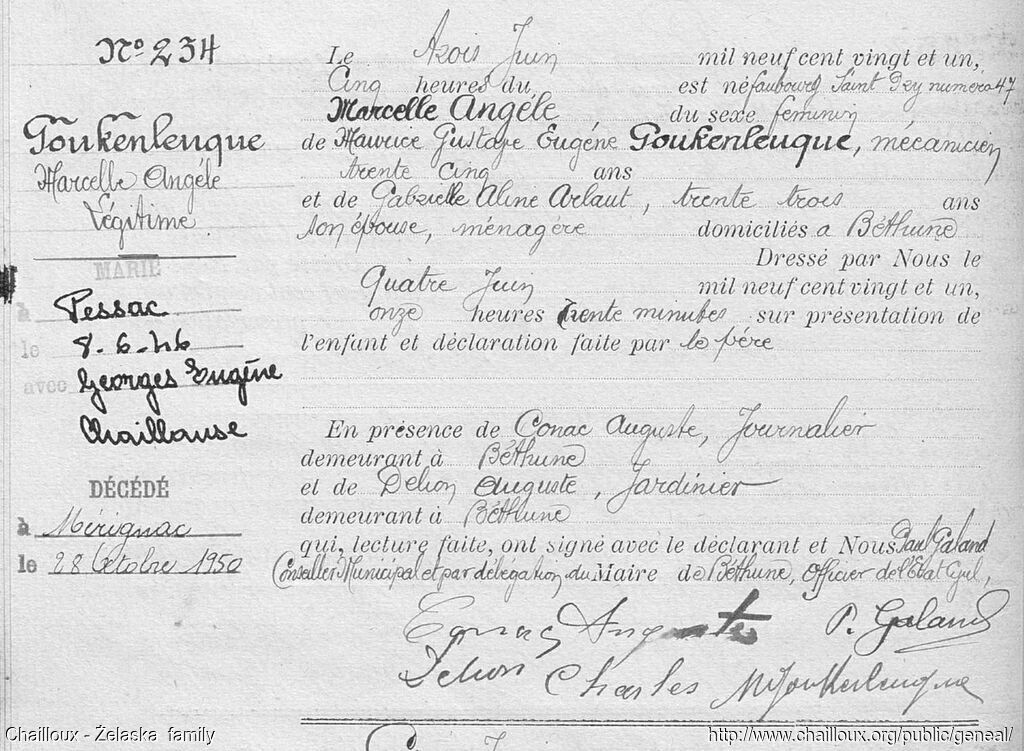 N° 234
Foukenleuque
Marcelle Angèle
Légitime
MARIÉ
à Pessac
le 8-6-46
avec Georges Eugène
Chaillouse
DÉCÉDÉ
à Mérignac
le 28 Octobre 1950
Le Trois Juin mil neuf cent vingt et un,
Cinq heures du est né faubourg Saint Pry numéro 47
Marcelle Angèle, du sexe féminin
de Maurice Gustave Eugène Foukenleuque, mécanicien
trente cinq ans
et de Gabrielle Aline Arlaut, trente trois ans
son épouse, ménagère domiciliés à Béthune
Dressé par Nous le
Quatre Juin mil neuf cent vingt et un,
onze heures trente minutes sur présentation de
l'enfant et déclaration faite par le père
En présence de Conac Auguste, Journalier
demeurant à Béthune
et de Delion Auguste, Jardinier
demeurant à Béthune
qui, lecture faite, ont signé avec le déclarant et Nous Paul Galand
Conseiller Municipal et par délégation du Maire de Béthune, Officier de l'Etat Civil,
Conac Auguste P. Galand
Delion Charles M Foukenleuque
Chailloux - Żelaska family
http://www.chailloux.org/public/geneal/